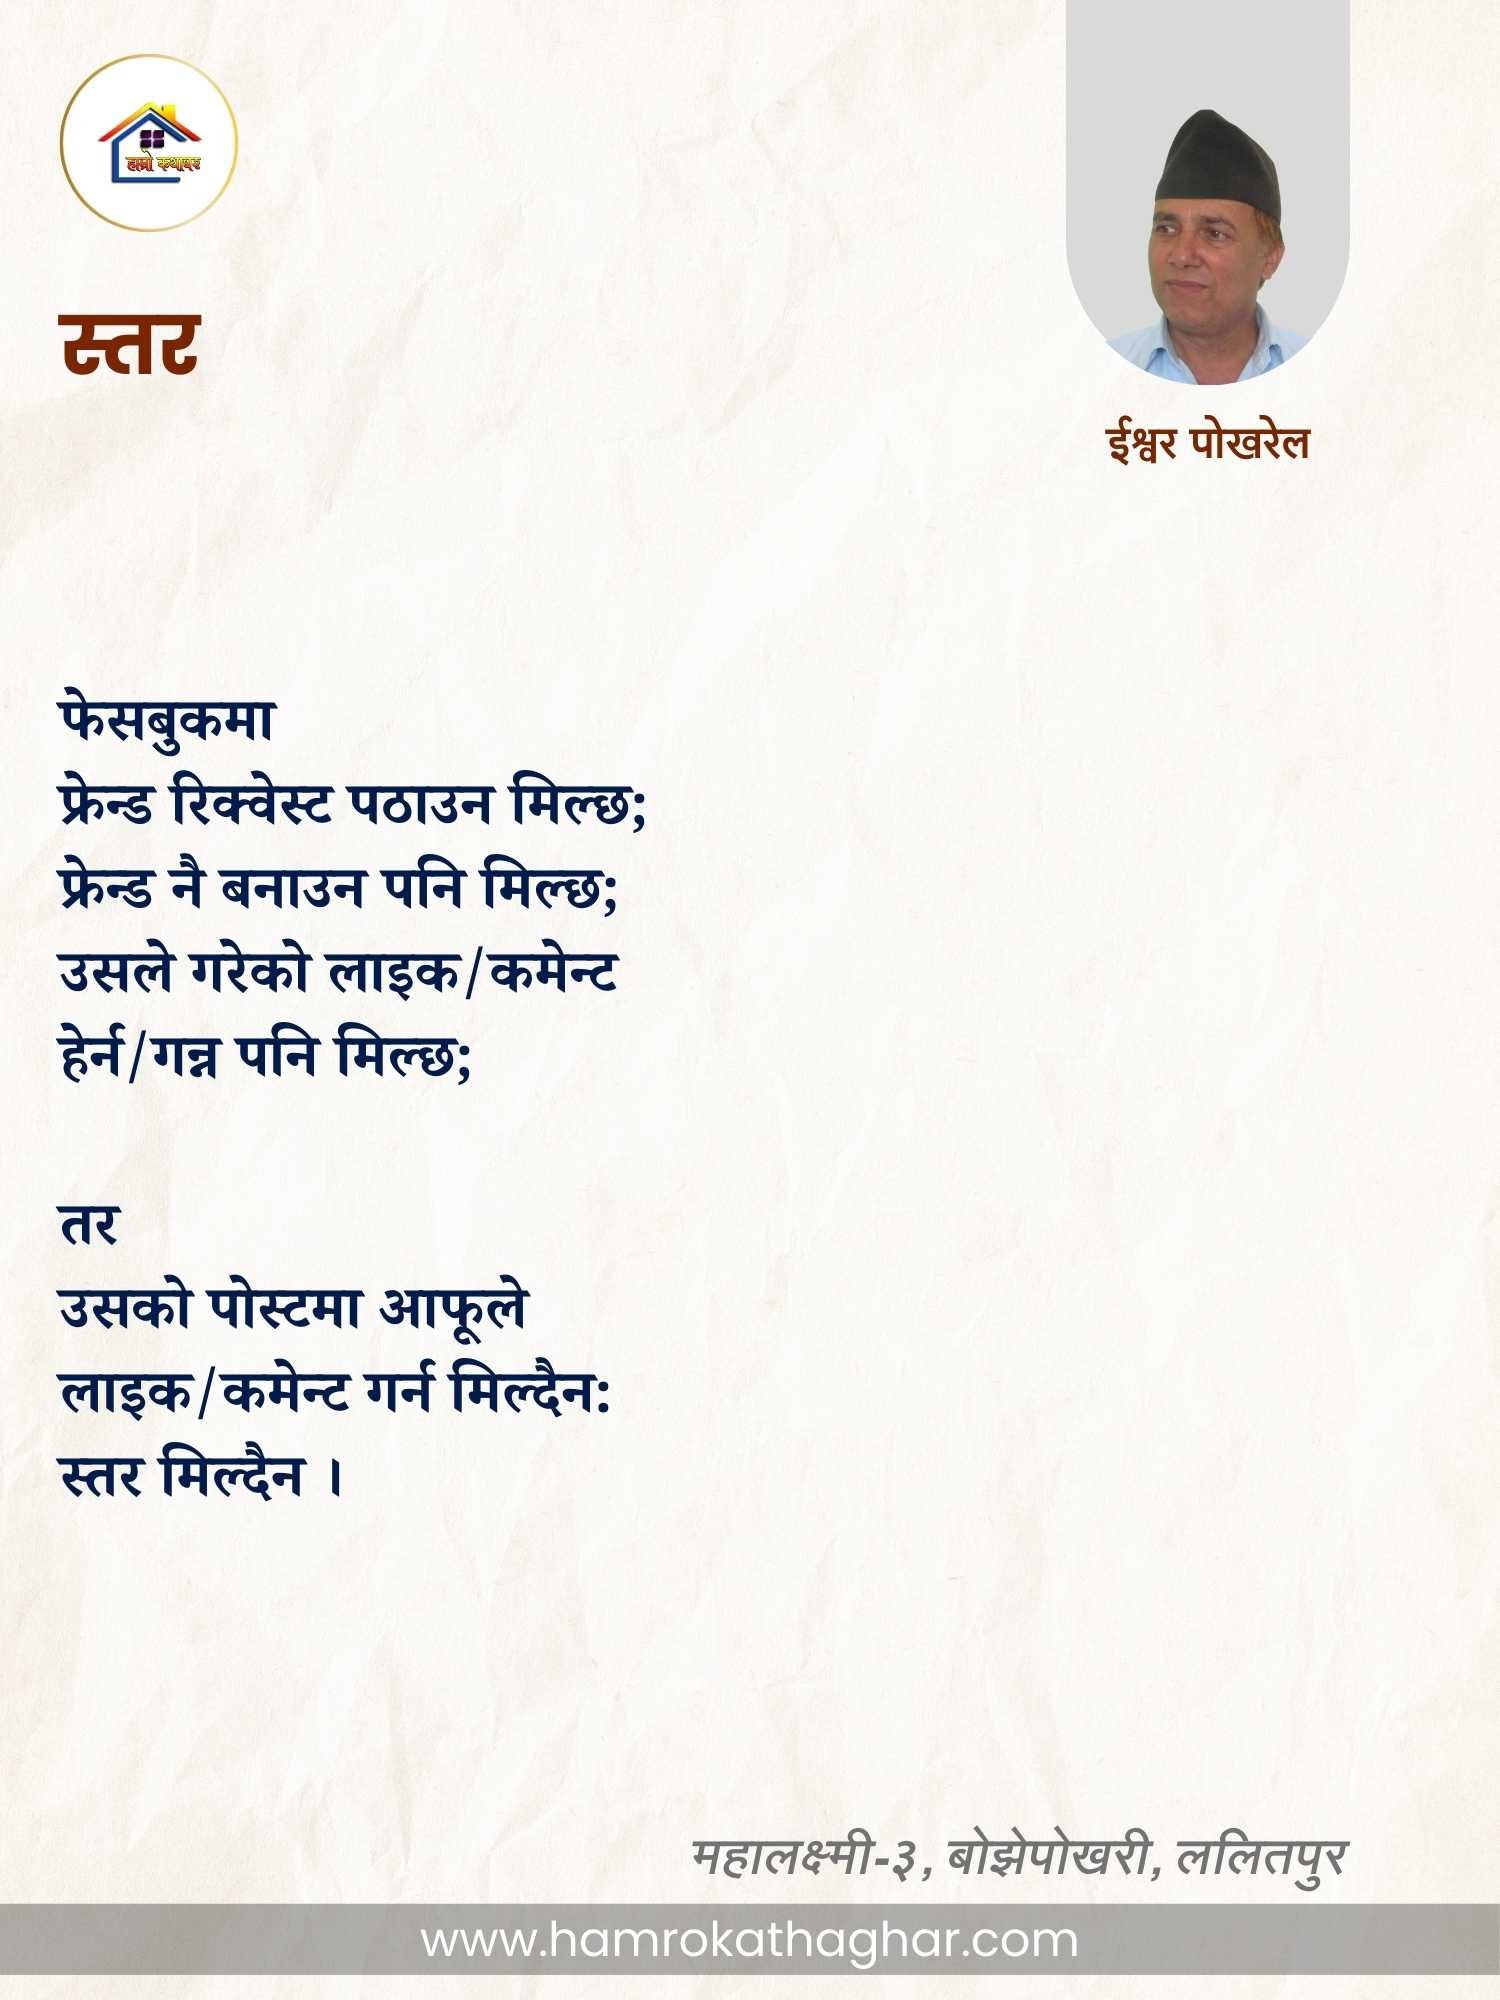 हाम्रो कथाघर
स्तर
ईश्वर पोखरेल
फेसबुकमा
फ्रेन्ड रिक्वेस्ट पठाउन मिल्छ;
फ्रेन्ड नै बनाउन पनि मिल्छ;
उसले गरेको लाइक/कमेन्ट
हेर्न/गन्न पनि मिल्छ;
तर
उसको पोस्टमा आफूले
लाइक/कमेन्ट गर्न मिल्दैन:
स्तर मिल्दैन ।
महालक्ष्मी-३, बोझेपोखरी, ललितपुर
www.hamrokathaghar.com